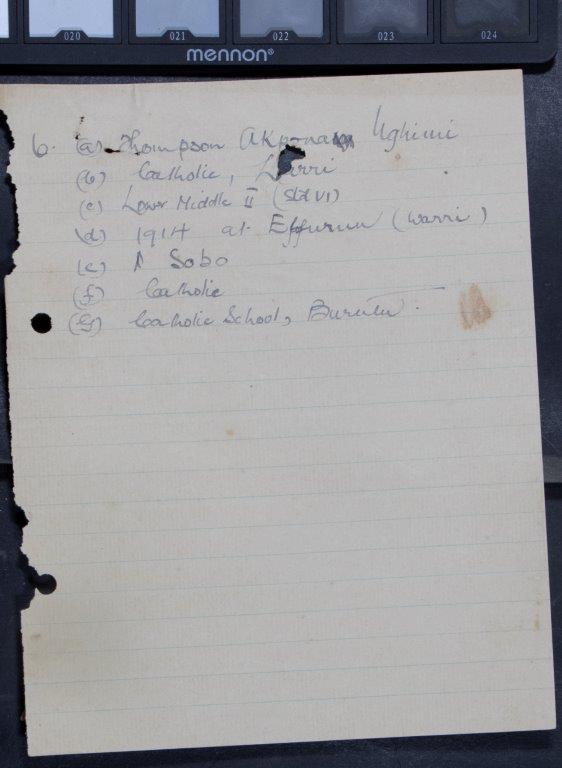 020 021 022 023 024
mennon®
6. (a) Thompson Ughimi
(b) Catholic, Warri
(c) Lower Middle II (Std VI)
(d) 1914 at Effurun (Warri)
(e) Sobo
(f) Catholic
(g) Catholic School, Burutu.